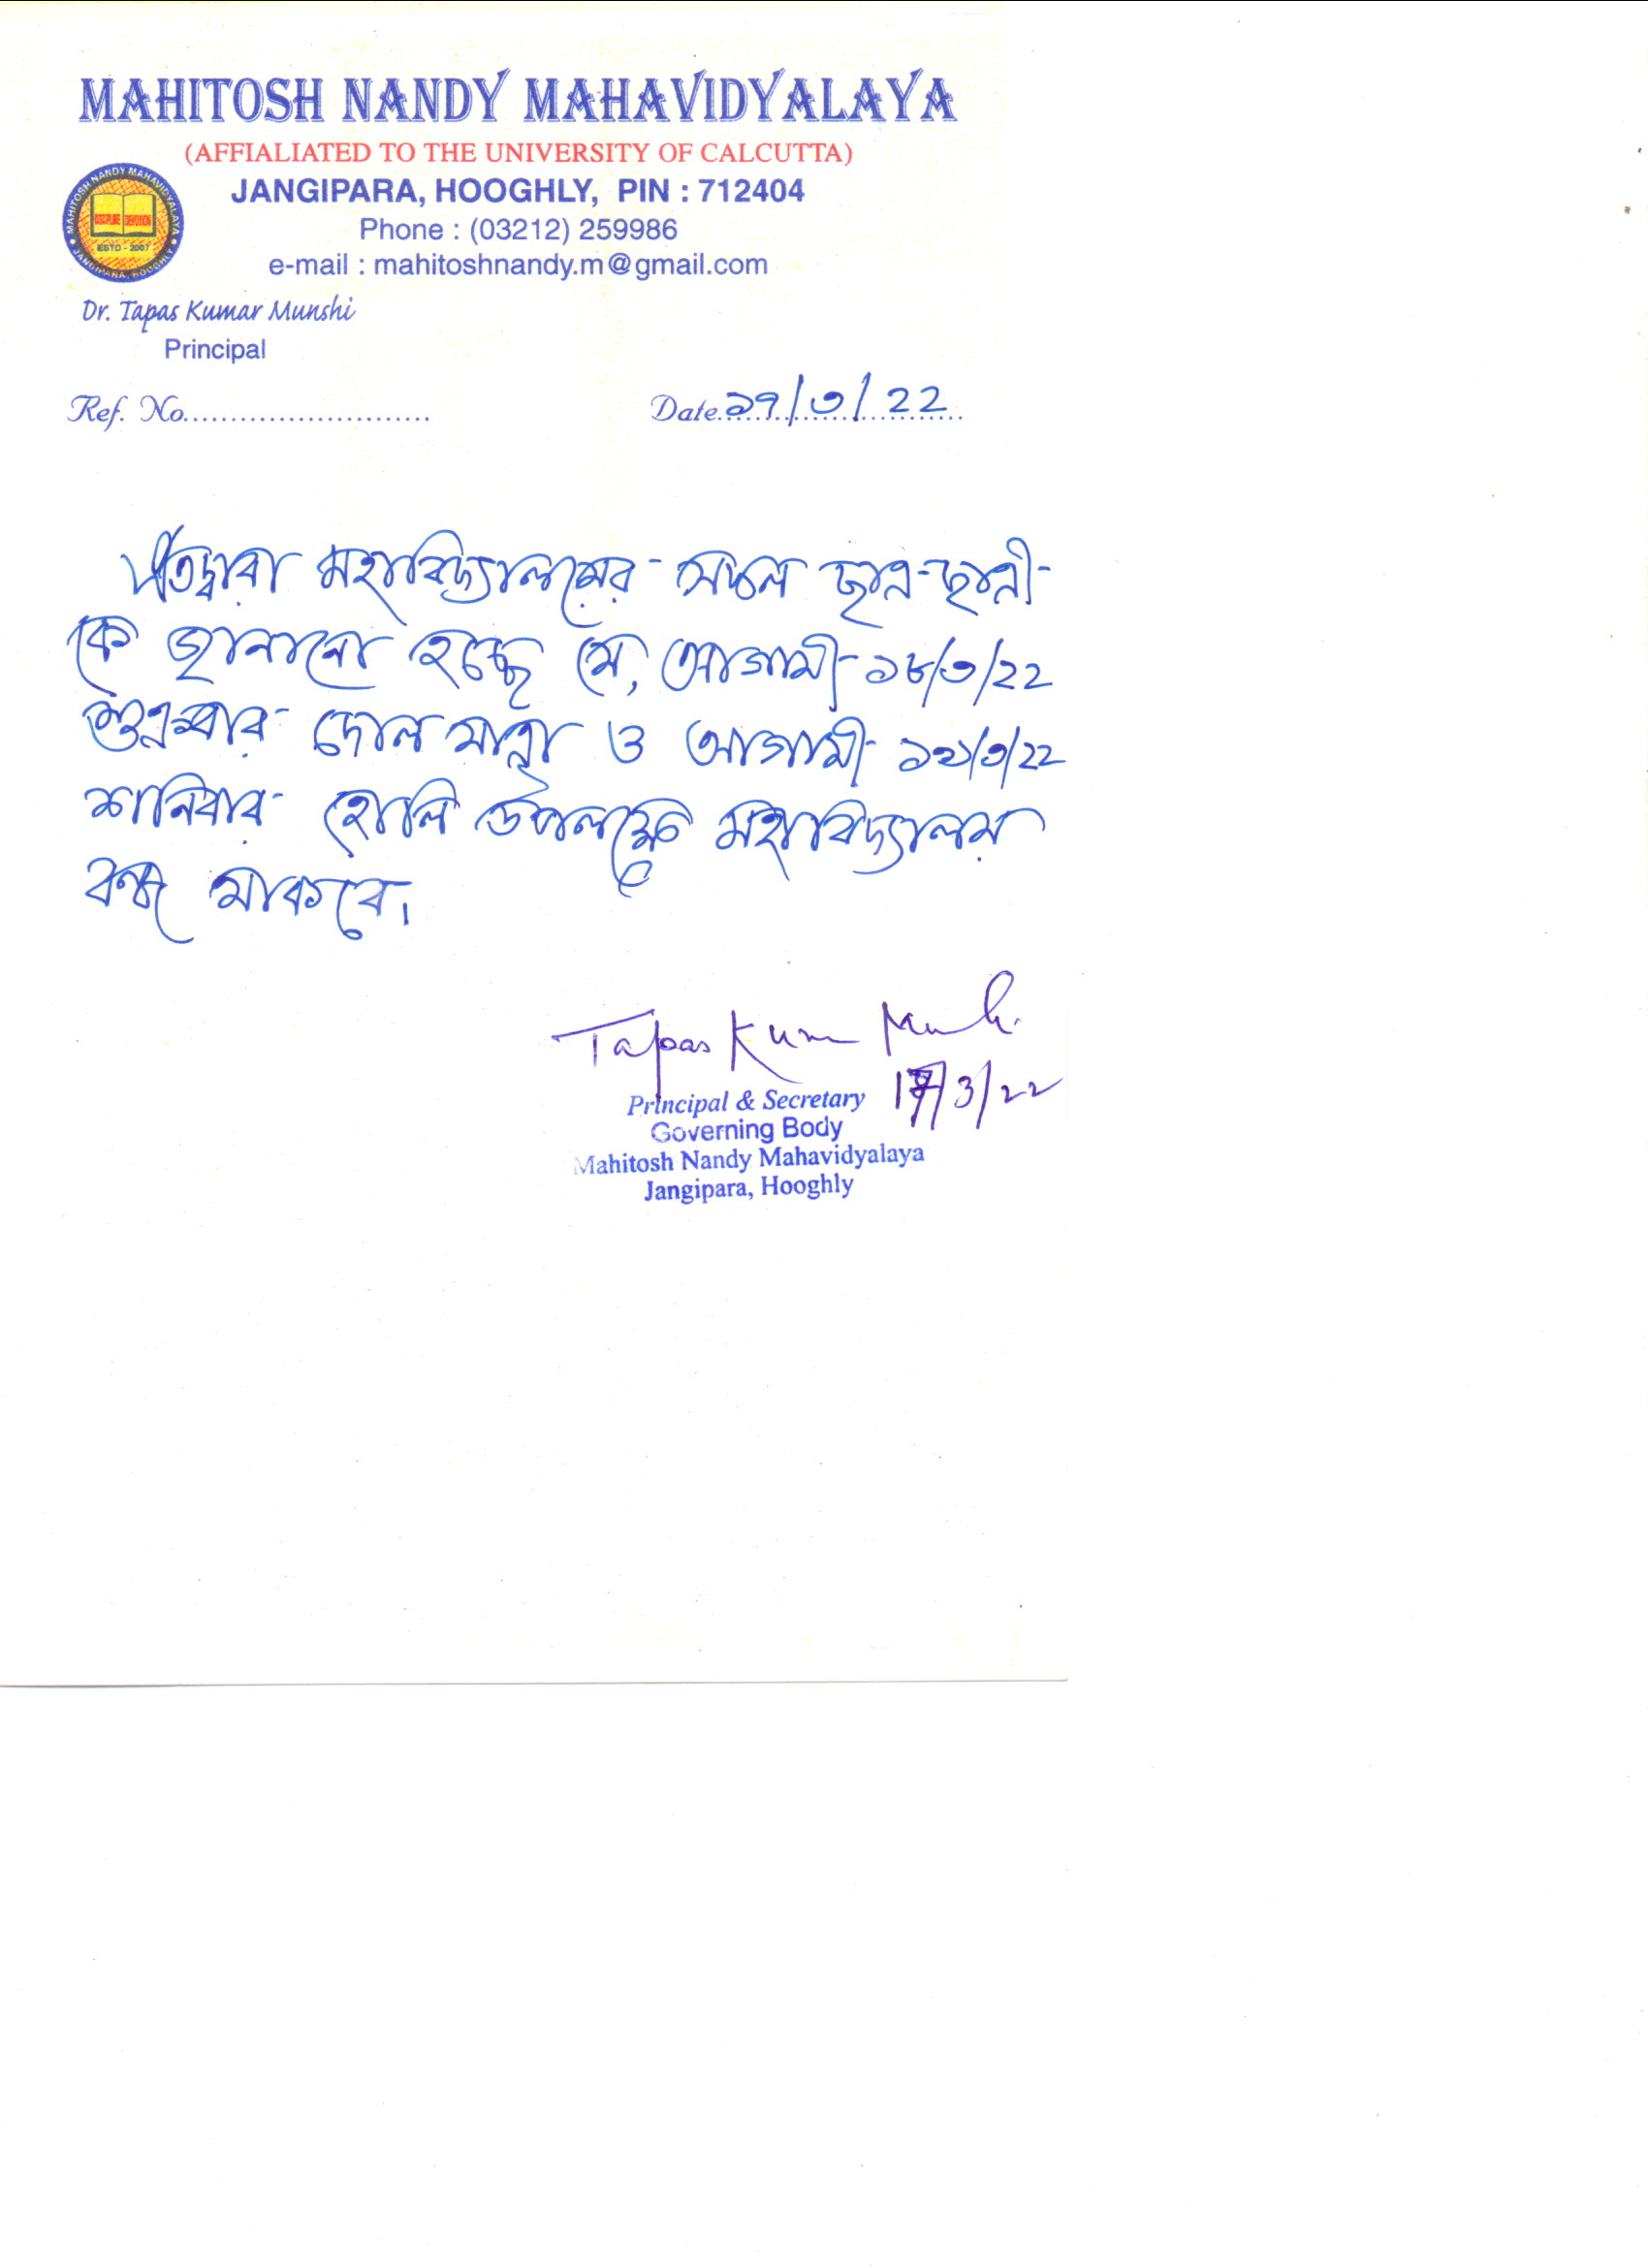 MAHITOSH NANDY MAHAVIDYALAYA
(AFFIALIATED TO THE UNIVERSITY OF CALCUTTA)
JANGIPARA, HOOGHLY, PIN : 712404
Phone : (03212) 259986
e-mail : mahitoshnandy.m@gmail.com
MAHITOSH NANDY MAHAVIDYALAYA
DISCIPLINE DEVOTION
ESTD - 2007
JANGIPARA, HOOGHLY
Dr. Tapas Kumar Munshi
Principal
Ref. No......................... Date ১৭/৩/২২
এতদ্বারা মহাবিদ্যালয়ের সকল ছাত্র-ছাত্রী-
কে জানানো হচ্ছে যে, আগামী ১৮/৩/২২
শুক্রবার দোল যাত্রা ও আগামী ১৯/৩/২২
শনিবার হোলি উপলক্ষে মহাবিদ্যালয়
বন্ধ থাকবে।
Tapas Kumar Munshi
17/3/22
Principal & Secretary
Governing Body
Mahitosh Nandy Mahavidyalaya
Jangipara, Hooghly